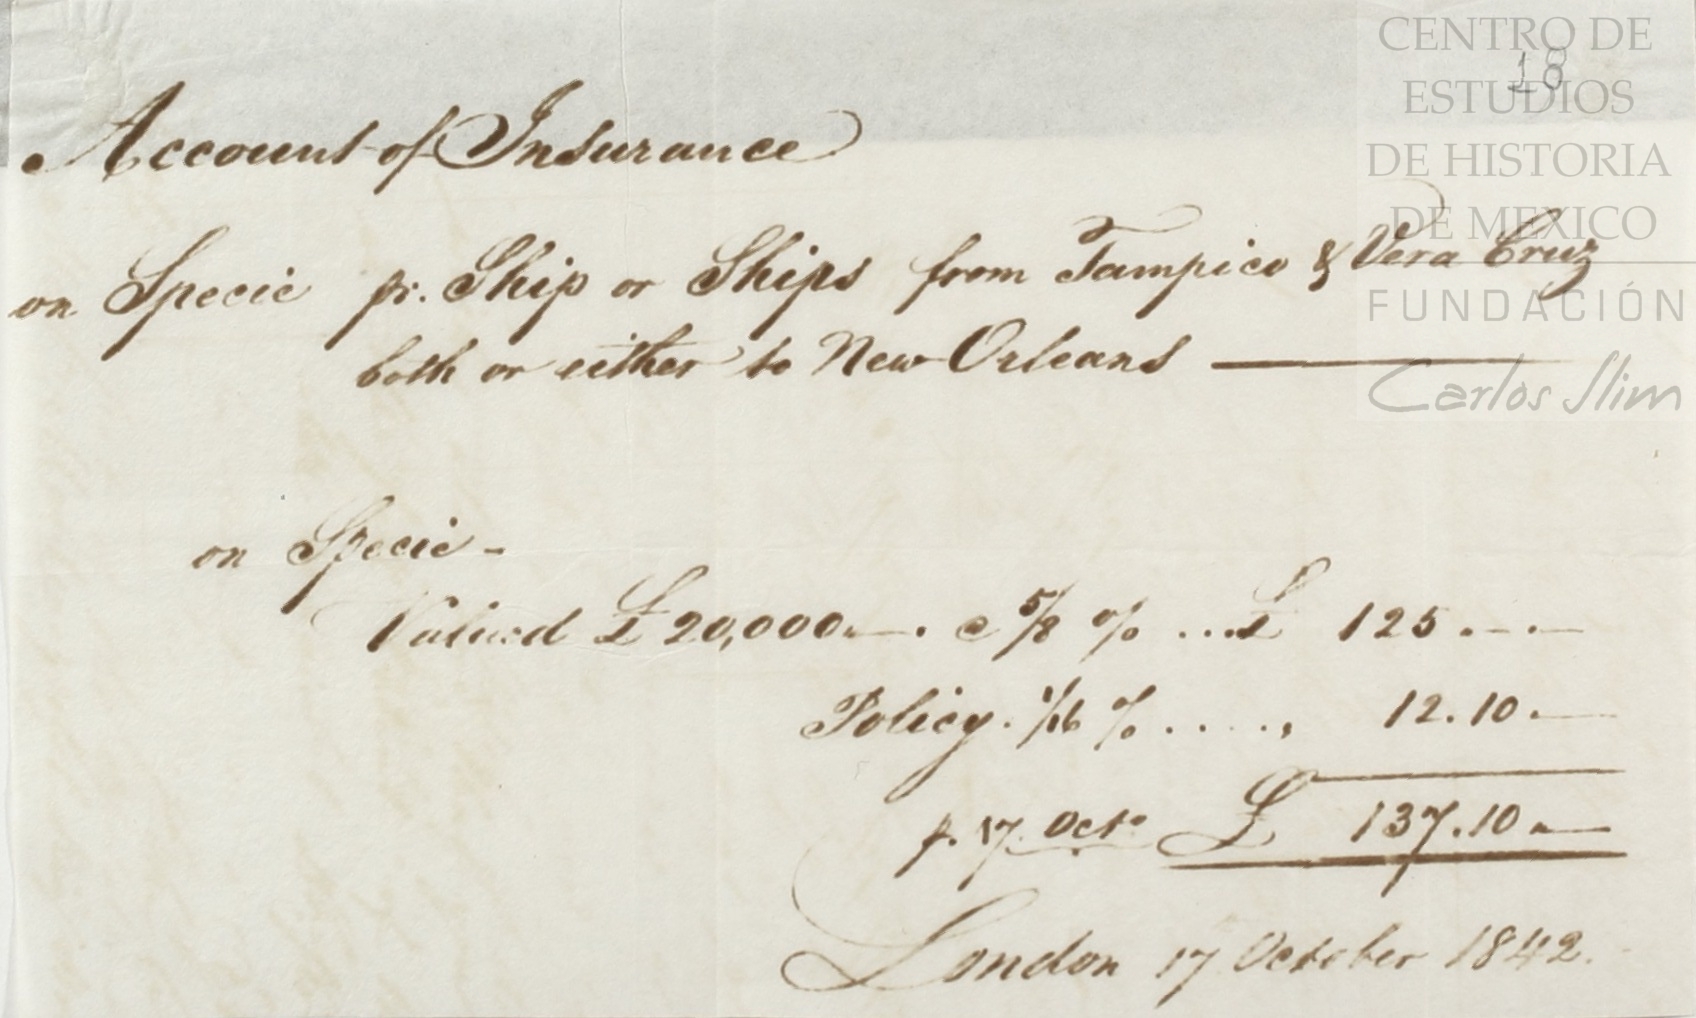 CENTRO DE
ESTUDIOS
DE HISTORIA
DE MEXICO
FUNDACIÓN
Carlos Slim
18
Account of Insurance
on Specie pr. Ship or Ships from Tampico & Vera Cruz
both or either to New Orleans
on Specie -
Valued £20,000 —. @ 5/8 % ... £ 125. — . —
Policy. 1/16 % ..... 12.10. —
p. 17 Octo £ 137.10 —
London 17 October 1842.